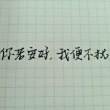 你若安好，我便不扰